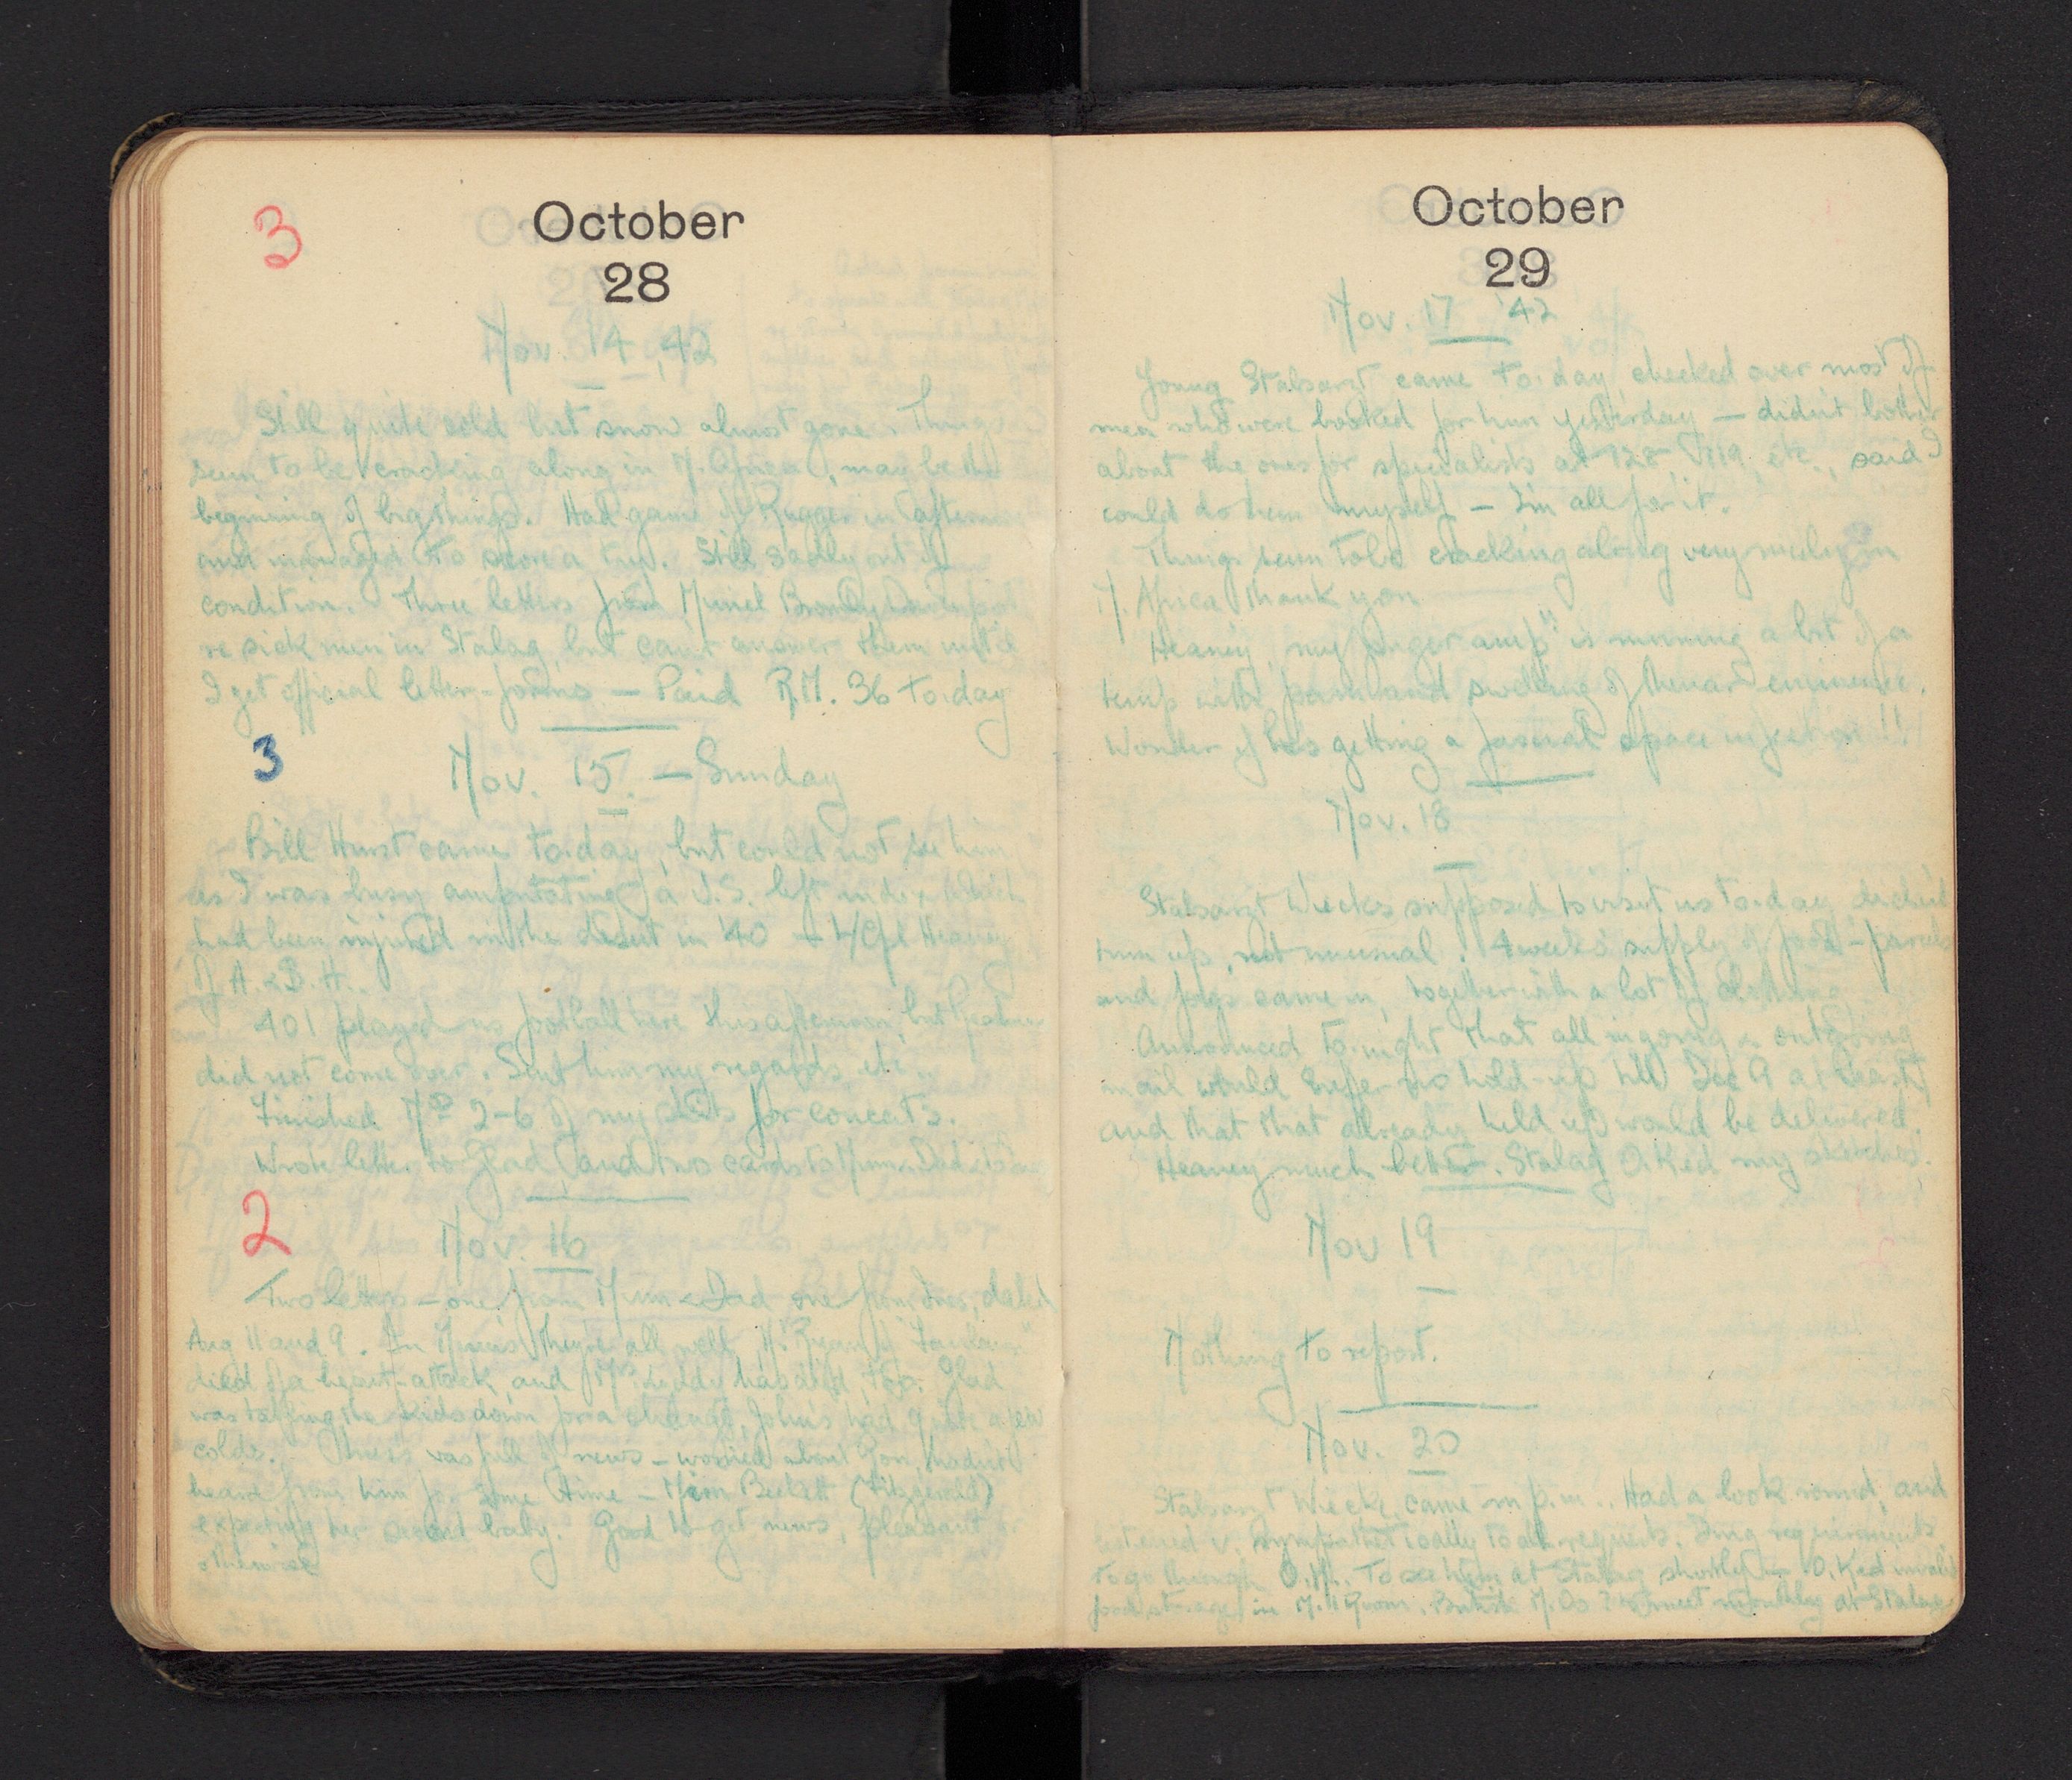 3
October
28
Nov. 14, 42
Still quite cold but snow almost gone. Things
seem to be cracking along in N. Africa, may be the
beginning of big things. Had game of Rugger in afternoon
and managed to score a try. Still sadly out of
condition. Three letters from Muriel Bromley Davenport
re sick men in Stalag, but can't answer them until
I get official letter-forms — Paid R.M. 36 to-day
3
Nov. 15. — Sunday
Bill Hurst came to-day, but could not see him
as I was busy amputating a left index which
had been injured in the desert in '40 — L/Cpl Heaney
of A. & S. H..
401 played us football here this afternoon, but
did not come over. Sent him my regards etc..
Finished Nos 2-6 of my for concerts.
Wrote letter to Glad and two cards to Mum & Dad &
2
Nov. 16
Two letters — one from Mum & Dad one from Ines, dated
Aug 11 and 9. In Mum's they're all well, Mr. Ryan of
died of a heart-attack, and Mrs. has died, too. Glad
was taking the kids down for a change, John's had quite a few
colds. Ines's was full of news — worried about Ron, hadn't
heard from him for some time — Miss Beckett (Fitzgerald)
expecting her second baby. Good to get news, pleasant or
otherwise
October
29
Nov. 17 '42
Young Stabsarzt came to-day, checked over most of
men who were booked for him yesterday — didn't bother
about the ones for specialists at etc., said I
could do them myself — I'm all for it.
Things seem to be cracking along very nicely in
N. Africa thank you
Heaney, my "finger amp" is running a bit of a
temp with pain and swelling of thenar eminence.
Wonder if he's getting a fascial space infection!!
Nov. 18
Stabsarzt Wiecks supposed to visit us to-day, didn't
turn up, not unusual! 4 weeks' supply of food-parcels
and fags came in, together with a lot of clothing.
Announced to-night that all ingoing & outgoing
mail would suffer no hold-up till Dec 9 at least,
and that that already held up would be delivered.
Heaney much better. Stalag O.K'ed my sketches.
Nov 19
Nothing to report.
Nov. 20
Stabsarzt Wiecks came in p.m.. Had a look round, and
listened v. sympathetically to all requests. Drug requirements
to go through O.K. To see him at Stalag shortly. O.K'ed invalid
food storage in M.I. Room. British M.Os to meet monthly at Stalag